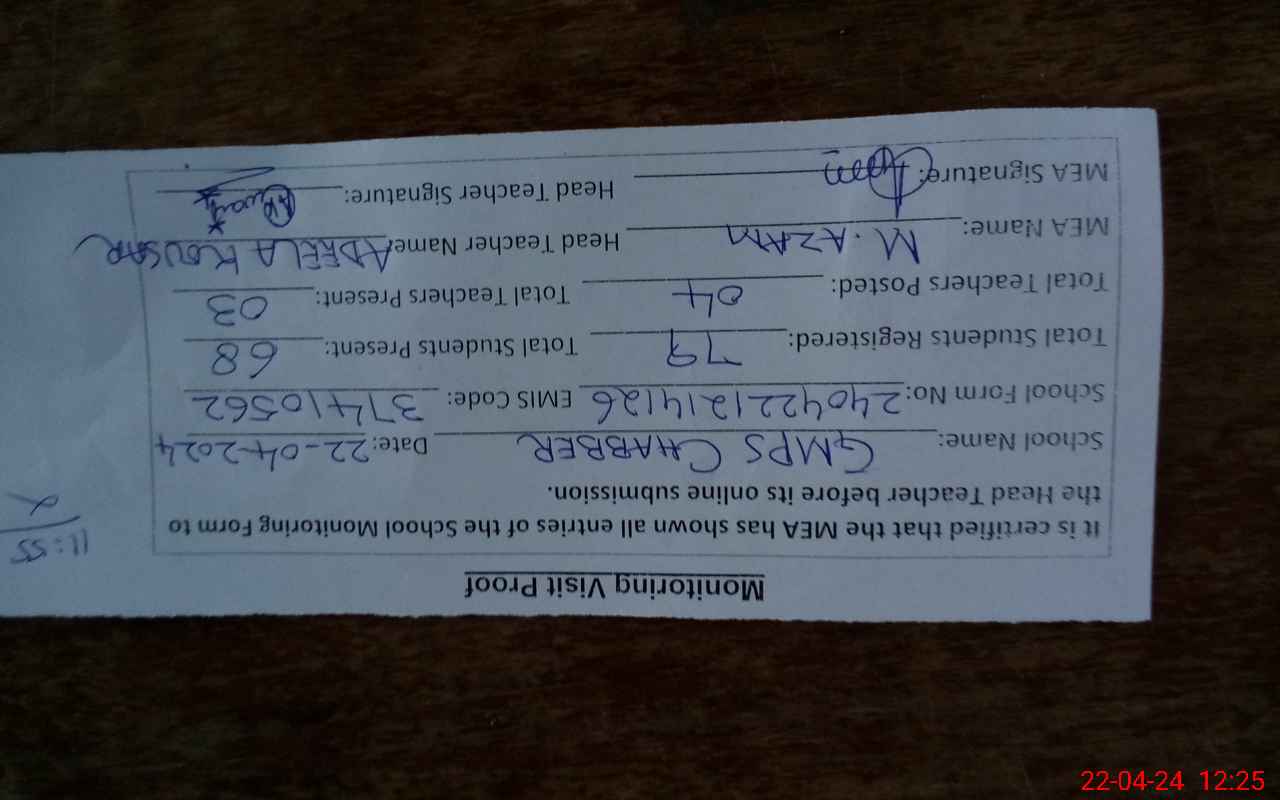 Monitoring Visit Proof
It is certified that the MEA has shown all entries of the School Monitoring Form to
the Head Teacher before its online submission.
School Name: GMPS CHABBER Date: 22-04-2024
School Form No: 2404221214126 EMIS Code: 37410562
Total Students Registered: 79 Total Students Present: 68
Total Teachers Posted: 04 Total Teachers Present: 03
MEA Name: M. AZAM Head Teacher Name ADEELA KOUSAR
MEA Signature: Head Teacher Signature:
11:55
22-04-24 12:25